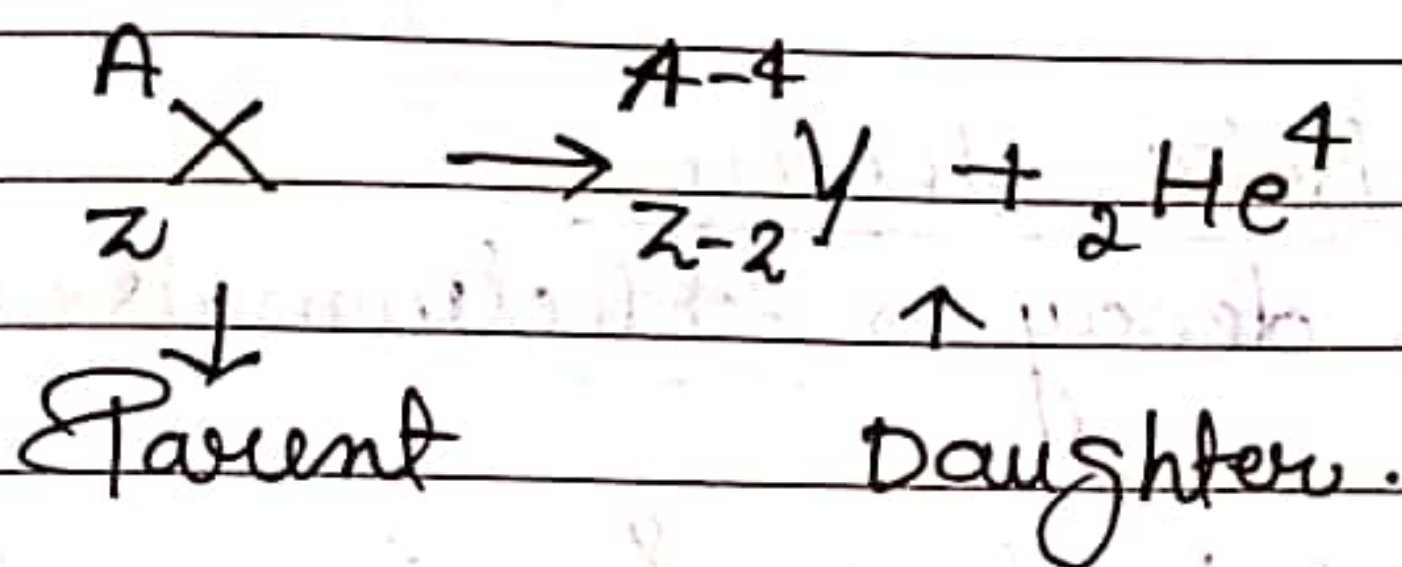 A X Z → A-4 Y Z-2 + 2 He 4
↓ ↑
Parent Daughter.